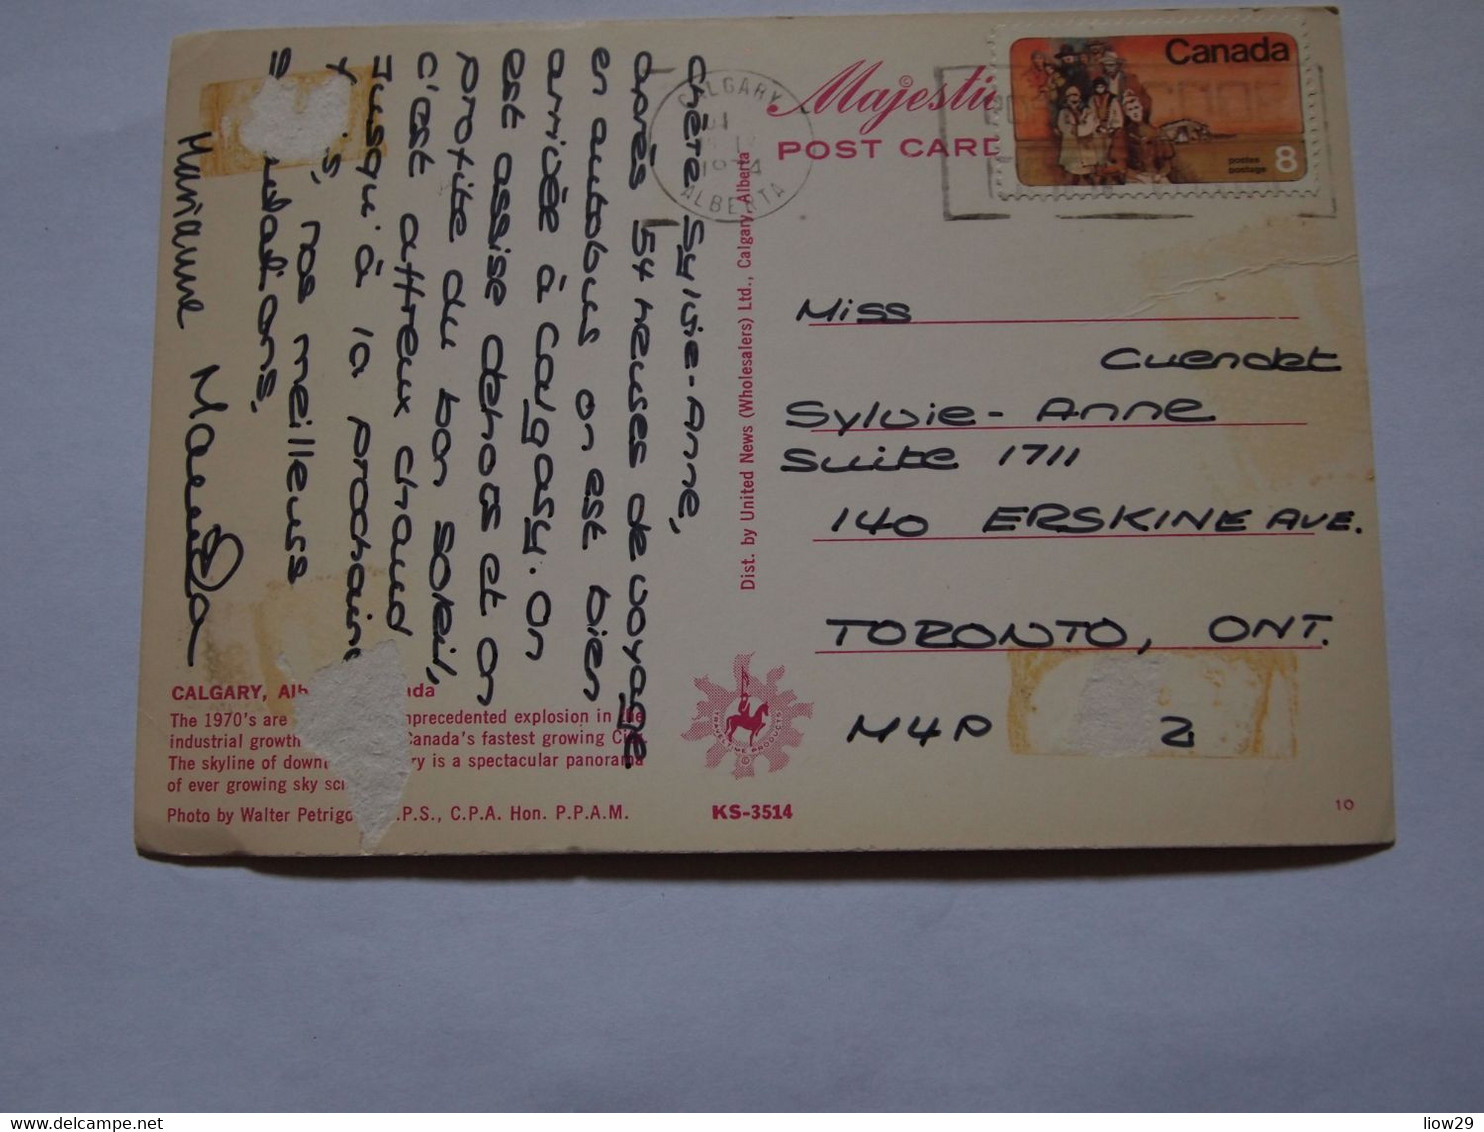 Chère Sylvie-Anne,
après 54 heures de voyage
en autobus on est bien
arrivée à Calgary. on
est assise dehors et on
profite du bon soleil,
c'est affreux chaud
Jusqu'à la prochaine
nos meilleurs
Marianne
CALGARY
1974
ALBERTA
Majestic
POST CARD
Canada
postes
postage
8
Dist. by United News (Wholesalers) Ltd., Calgary, Alberta
Miss
Cuendet
Sylvie-Anne
Suite 1711
140 ERSKINE AVE.
TORONTO, ONT.
M4P 2
TRAVELTIME PRODUCTS
CALGARY, Alb nada
The 1970's are nprecedented explosion in the
industrial growth Canada's fastest growing Ci
The skyline of downt ry is a spectacular panorama
of ever growing sky sc
Photo by Walter Petrigo .P.S., C.P.A. Hon. P.P.A.M.
KS-3514
10